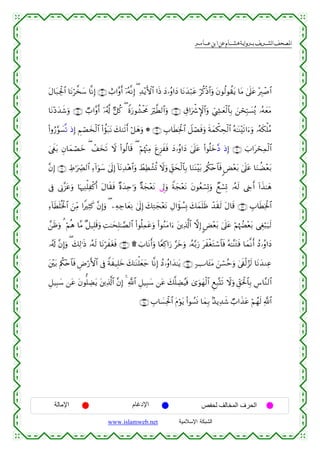 المصحف الشريف برواية هشام عن ابن عامر
ٱصْبِرْ عَلَىٰ مَا يَقُولُونَ وَٱذْكُرْ عَبْدَنَا دَاوُۥدَ ذَا ٱلْأَيْدِ إِنَّهُۥٓ أَوَّابٌ إِنَّا سَخَّرْنَا ٱلْجِبَالَ
مَعَهُۥ يُسَبِّحْنَ بِٱلْعَشِىِّ وَٱلْإِشْرَاقِ وَٱلطَّيْرَ مَحْشُورَةً كُلٌّ لَّهُۥٓ أَوَّابٌ وَشَدَدْنَا
مُلْكَهُۥ وَءَاتَيْنَٰهُ ٱلْحِكْمَةَ وَفَصْلَ ٱلْخِطَابِ * وَهَلْ أَتَىٰكَ نَبَؤُا۟ ٱلْخَصْمِ إِذ تَّسَوَّرُوا۟
ٱلْمِحْرَابَ إِذ دَّخَلُوا۟ عَلَىٰ دَاوُۥدَ فَفَزِعَ مِنْهُمْ قَالُوا۟ لَا تَخَفْ خَصْمَانِ بَغَىٰ
بَعْضُنَا عَلَىٰ بَعْضٍ فَٱحْكُم بَيْنَنَا بِٱلْحَقِّ وَلَا تُشْطِطْ وَٱهْدِنَآ إِلَىٰ سَوَآءِ ٱلصِّرَٰطِ إِنَّ
هَٰذَآ أَخِى لَهُۥ تِسْعٌ وَتِسْعُونَ نَعْجَةً وَلِىَ نَعْجَةٌ وَٰحِدَةٌ فَقَالَ أَكْفِلْنِيهَا وَعَزَّنِى فِى
ٱلْخِطَابِ قَالَ لَقَد ظَّلَمَكَ بِسُؤَالِ نَعْجَتِكَ إِلَىٰ نِعَاجِهِۦ وَإِنَّ كَثِيرًا مِّنَ ٱلْخُلَطَآءِ
لَيَبْغِى بَعْضُهُمْ عَلَىٰ بَعْضٍ إِلَّا ٱلَّذِينَ ءَامَنُوا۟ وَعَمِلُوا۟ ٱلصَّٰلِحَٰتِ وَقَلِيلٌ مَّا هُمْ وَظَنَّ
دَاوُۥدُ أَنَّمَا فَتَنَّٰهُ فَٱسْتَغْفَرَ رَبَّهُۥ وَخَرَّ رَاكِعًا وَأَنَابَ ۩ فَغَفَرْنَا لَهُۥ ذَٰلِكَ وَإِنَّ لَهُۥ
عِندَنَا لَزُلْفَىٰ وَحُسْنَ مَـَٔابٍ يَٰدَاوُۥدُ إِنَّا جَعَلْنَٰكَ خَلِيفَةً فِى ٱلْأَرْضِ فَٱحْكُم بَيْنَ
ٱلنَّاسِ بِٱلْحَقِّ وَلَا تَتَّبِعِ ٱلْهَوَىٰ فَيُضِلَّكَ عَن سَبِيلِ ٱللَّهِ إِنَّ ٱلَّذِينَ يَضِلُّونَ عَن سَبِيلِ
ٱللَّهِ لَهُمْ عَذَابٌ شَدِيدٌ بِمَا نَسُوا۟ يَوْمَ ٱلْحِسَابِ
الحرف المخالف لحفص الإدغام الإمالة
الشبكة الإسلامية www.islamweb.net